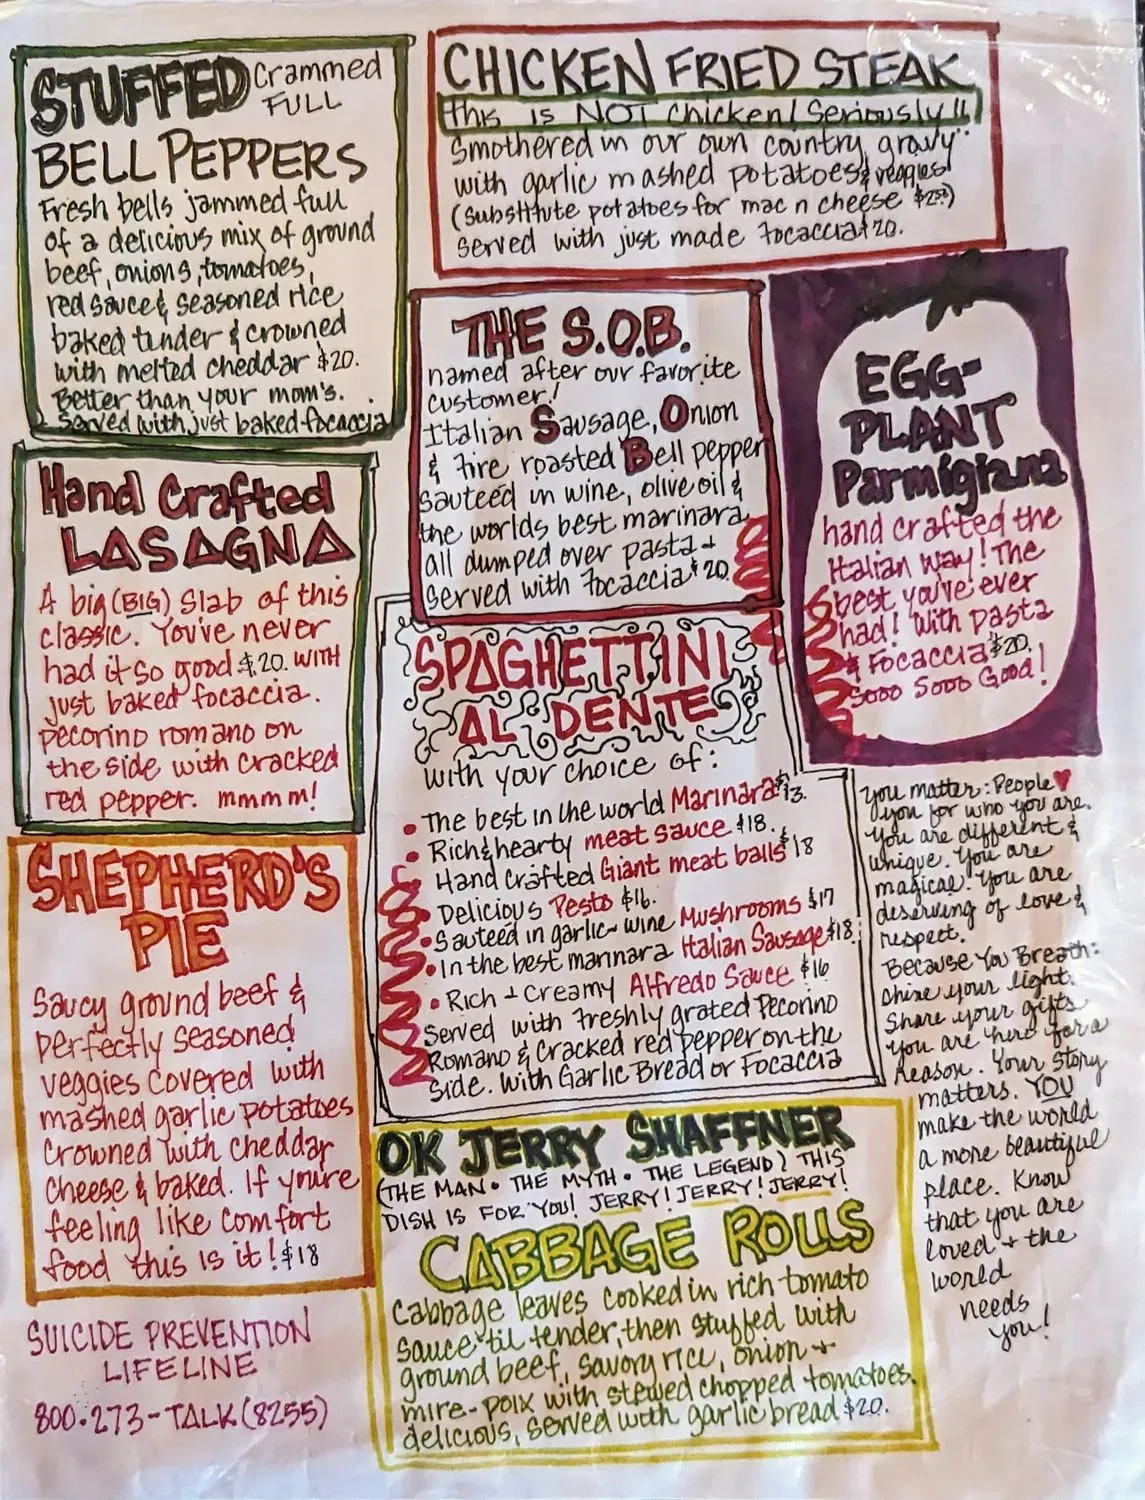 STUFFED Crammed FULL
BELL PEPPERS
Fresh bells jammed full
of a delicious mix of ground
beef, onions, tomatoes,
red sauce & seasoned rice
baked tender & crowned
with melted cheddar $20.
Better than your mom's.
Served with just baked focaccia
Hand Crafted
LASAGNA
A big (BIG) slab of this
classic. You've never
had it so good $20. WITH
just baked focaccia.
pecorino romano on
the side with cracked
red pepper. mmmm!
SHEPHERD'S
PIE
Saucy ground beef &
perfectly seasoned
veggies covered with
mashed garlic potatoes
Crowned with cheddar
cheese & baked. If you're
feeling like comfort
food this is it! $18
SUICIDE PREVENTION
LIFELINE
800-273-TALK (8255)
CHICKEN FRIED STEAK
this is NOT chicken! Seriously!!
Smothered in our own country gravy
with garlic mashed potatoes & veggies!
(substitute potatoes for mac n cheese $2.50)
served with just made focaccia $20.
THE S.O.B.
named after our favorite
customer!
Italian Sausage, Onion
& fire roasted Bell pepper
sauteed in wine, olive oil &
the worlds best marinara
all dumped over pasta +
served with focaccia $20.
EGG-
PLANT
Parmigiana
hand crafted the
Italian way! The
best you've ever
had! With pasta
& Focaccia $20.
Sooo Sooo Good!
SPAGHETTINI
AL DENTE
with your choice of:
• The best in the world Marinara $13.
• Rich & hearty meat sauce $18.
• Hand Crafted Giant meat balls $18
• Delicious Pesto $16.
• Sauteed in garlic~wine Mushrooms $17
• In the best marinara Italian Sausage $18.
• Rich + Creamy Alfredo Sauce $16
Served with freshly grated Pecorino
Romano & cracked red pepper on the
side. With Garlic Bread or Focaccia
you matter: People ♥
you for who you are.
You are different &
unique. You are
magical. You are
deserving of love &
respect.
Because You Breath:
Shine your light.
Share your gifts
you are here for a
reason. Your story
matters. YOU
make the world
a more beautiful
place. Know
that you are
loved + the
world
needs
you!
OK JERRY SHAFFNER
(THE MAN • THE MYTH • THE LEGEND) THIS
DISH IS FOR YOU! JERRY! JERRY! JERRY!
CABBAGE ROLLS
Cabbage leaves cooked in rich tomato
sauce 'til tender, then stuffed with
ground beef, savory rice, onion +
mire-poix with stewed chopped tomatoes.
delicious, served with garlic bread $20.